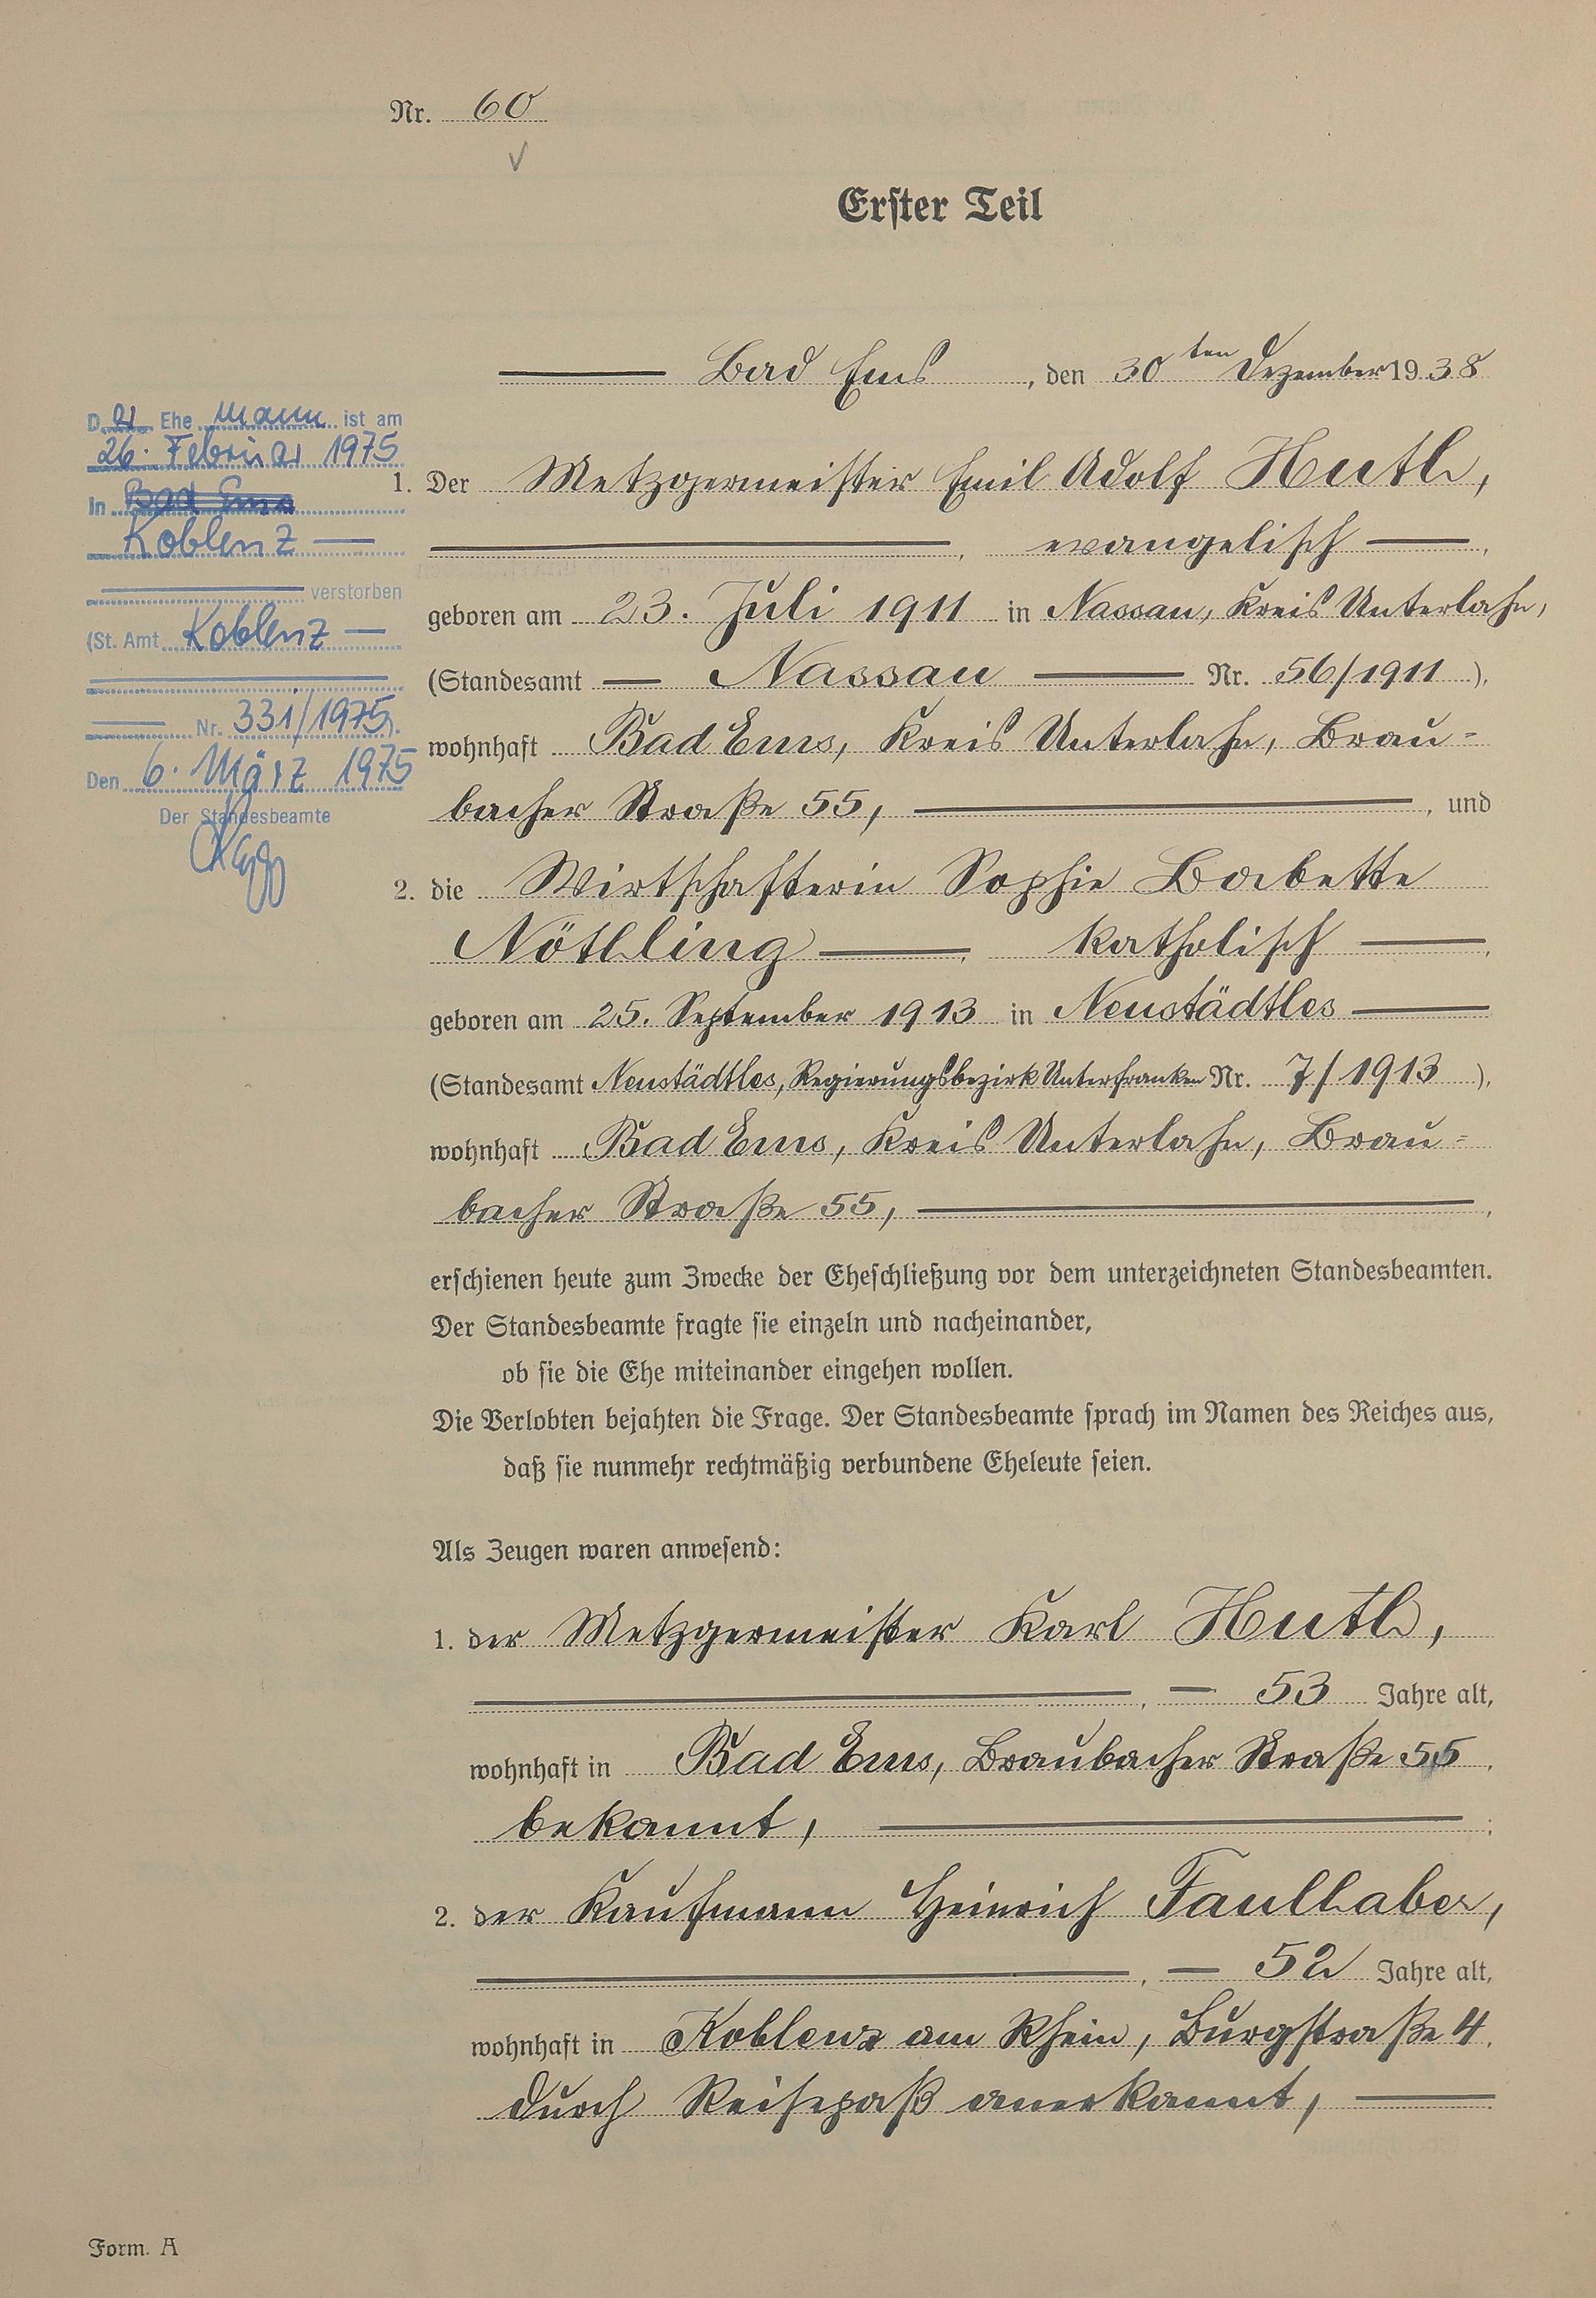 Nr. 60
Erster Teil
Bad Ems, den 30ten Dezember 1938
1. Der Metzgermeister Emil Adolf Huth,
evangelisch,
geboren am 23. Juli 1911 in Nassau, Kreis Unterlahn,
(Standesamt Nassau Nr. 56/1911),
wohnhaft Bad Ems, Kreis Unterlahn, Brau=
bacher Straße 55, , und
2. die Wirtschafterin Sophie Babette
Nöthling, katholisch,
geboren am 25. September 1913 in Neustädtles
(Standesamt Neustädtles, Regierungsbezirk Unterfranken Nr. 7/1913),
wohnhaft Bad Ems, Kreis Unterlahn, Brau=
bacher Straße 55, ,
erschienen heute zum Zwecke der Eheschließung vor dem unterzeichneten Standesbeamten.
Der Standesbeamte fragte sie einzeln und nacheinander,
ob sie die Ehe miteinander eingehen wollen.
Die Verlobten bejahten die Frage. Der Standesbeamte sprach im Namen des Reiches aus,
daß sie nunmehr rechtmäßig verbundene Eheleute seien.
Als Zeugen waren anwesend:
1. der Metzgermeister Karl Huth,
, — 53 Jahre alt,
wohnhaft in Bad Ems, Braubacher Straße 55,
bekannt, ;
2. der Kaufmann Heinrich Faulhaber,
, — 52 Jahre alt,
wohnhaft in Koblenz am Rhein, Burgstraße 4.
durch Reisepaß anerkannt,
D er Ehe mann ist am
26. Februar 1975
in Bad Ems
Koblenz —
verstorben
(St. Amt Koblenz —
Nr. 331/1975).
Den 6. März 1975
Der Standesbeamte
Form. A